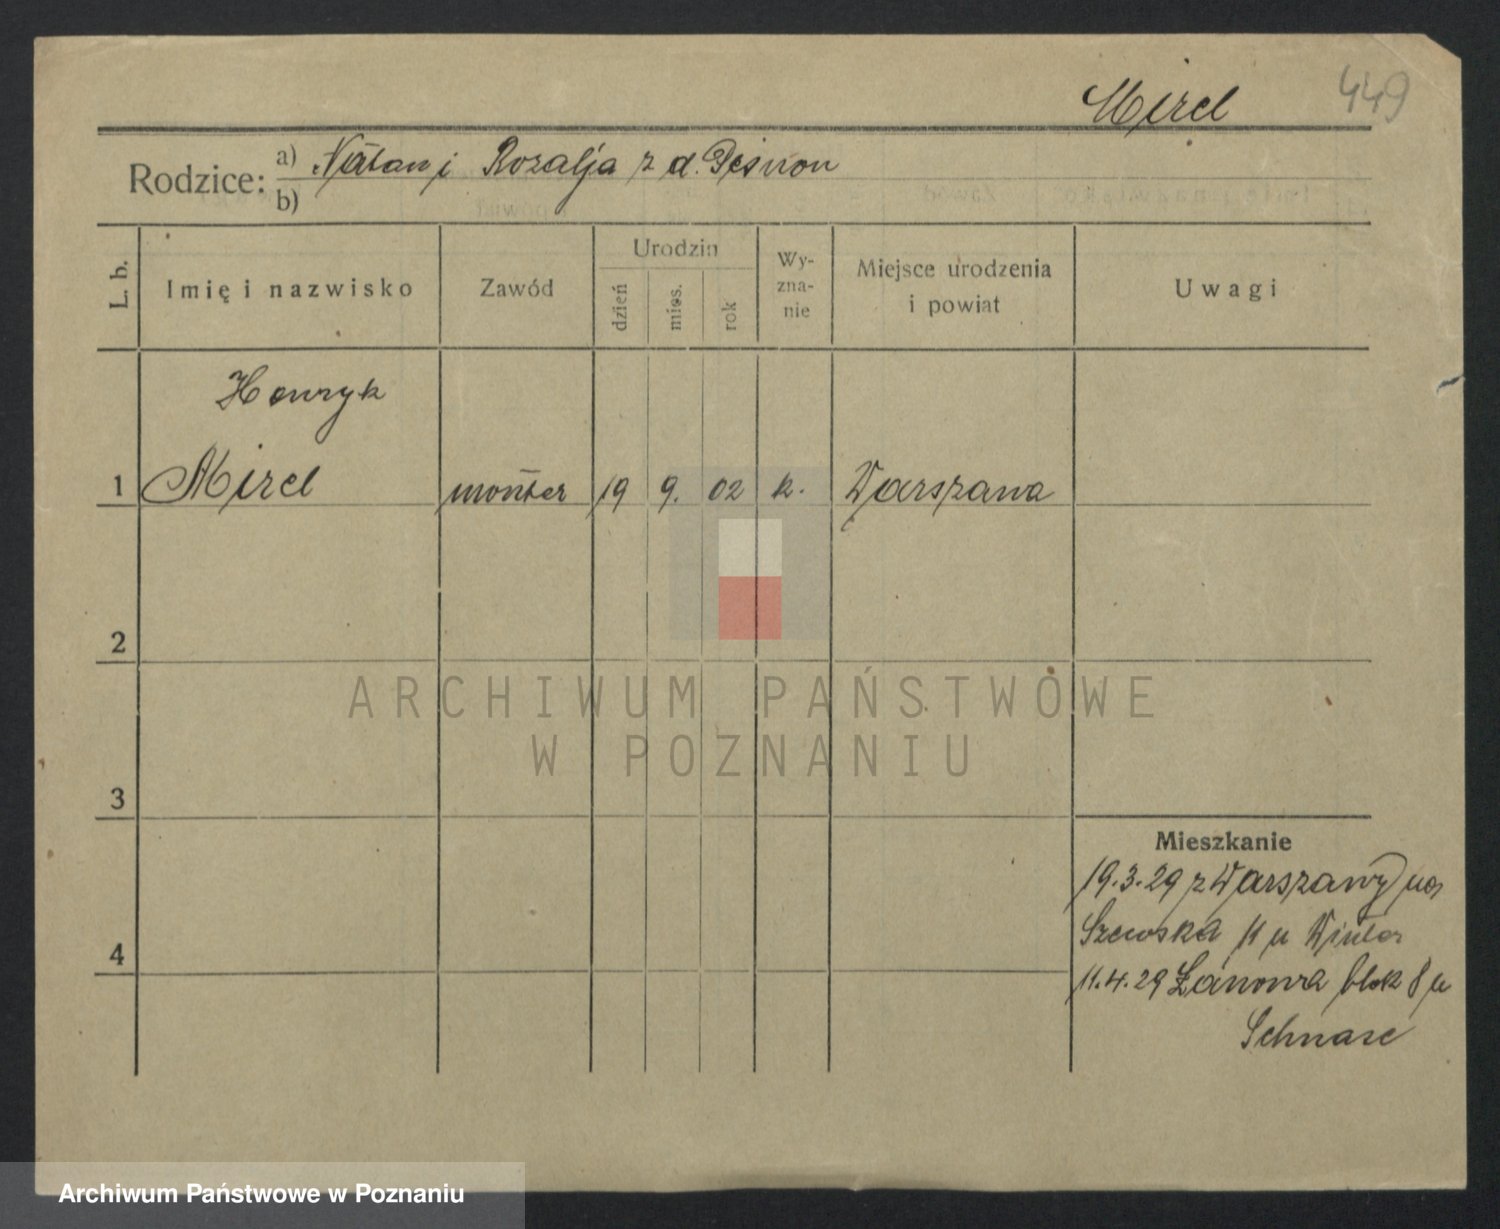 Mirel 449
Rodzice: a) Natan i Rozalja z d.
b)
L. b.
Imię i nazwisko
Zawód
Urodzin
dzień
mies.
rok
Wy-
zna-
nie
Miejsce urodzenia
i powiat
Uwagi
Henryk
1 Mirel monter 19 9. 02 k. Warszawa
2
3
4
Mieszkanie
19.3.29 z Warszawy na
Szewska 11 u Winter
11.4.29 Łanowa blok 8 u
Schnase
ARCHIWUM PAŃSTWOWE
W POZNANIU
Archiwum Państwowe w Poznaniu